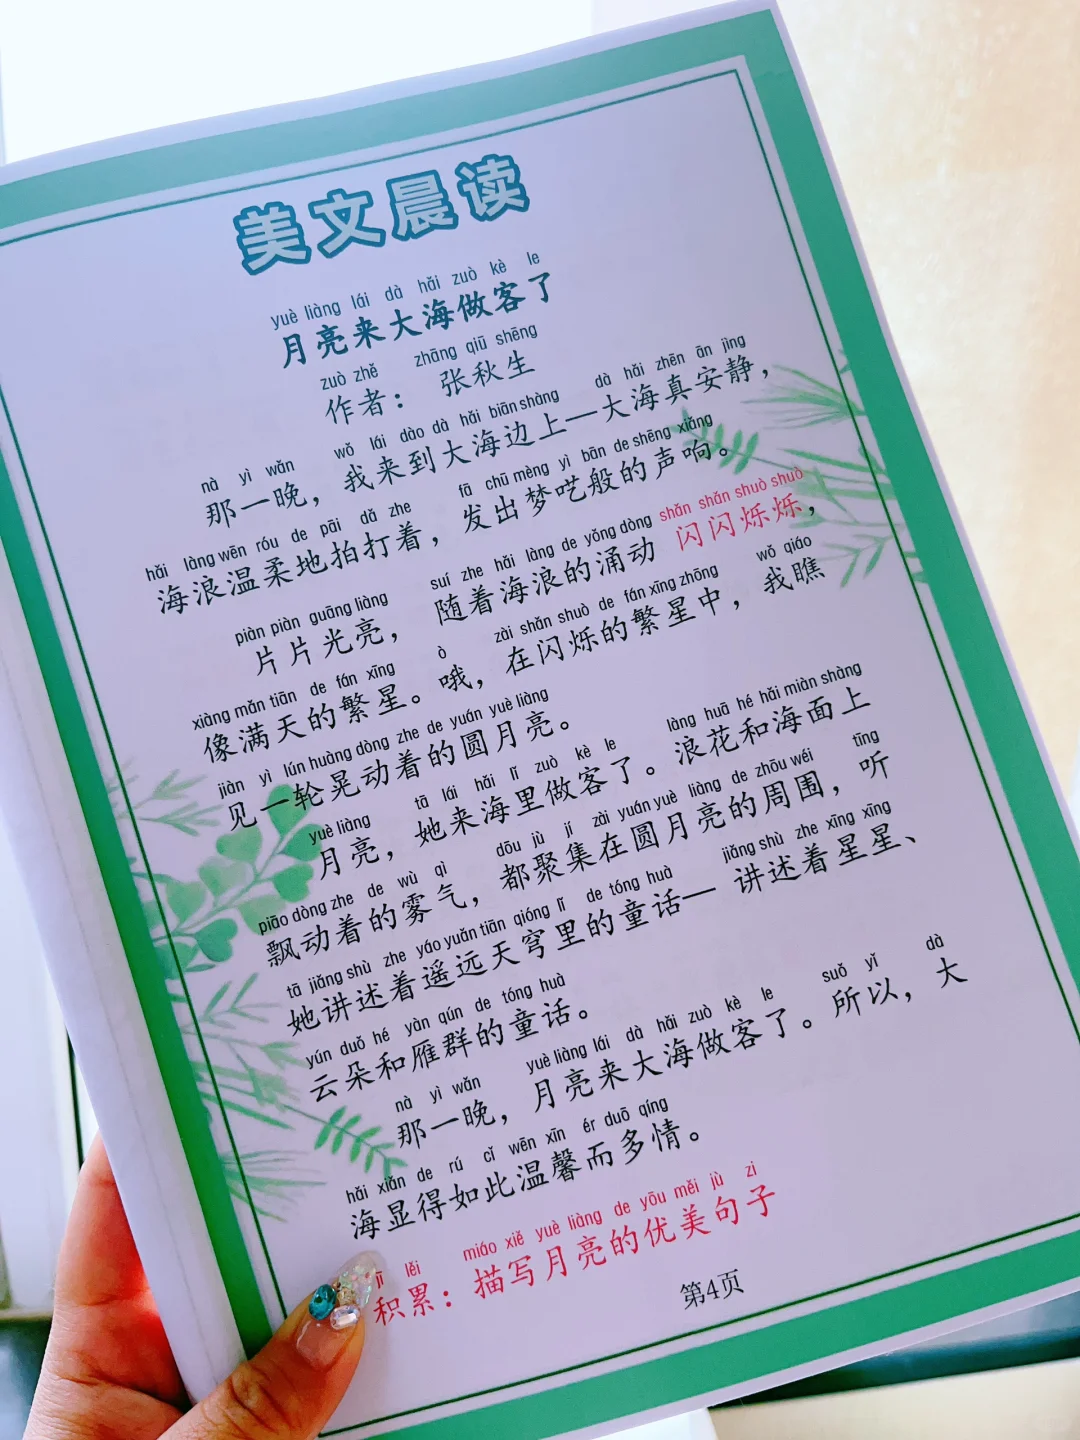 美文晨读
yuè liàng lái dà hǎi zuò kè le
月亮来大海做客了
zuò zhě zhāng qiū shēng
作者： 张秋生
nà yì wǎn wǒ lái dào dà hǎi biān shàng dà hǎi zhēn ān jìng
那一晚，我来到大海边上—大海真安静，
hǎi làng wēn róu de pāi dǎ zhe fā chū mèng yì bān de shēng xiǎng
海浪温柔地拍打着，发出梦呓般的声响。
piàn piàn guāng liàng suí zhe hǎi làng de yǒng dòng shǎn shǎn shuò shuò
片片光亮，随着海浪的涌动 闪闪烁烁，
xiàng mǎn tiān de fán xīng ò zài shǎn shuò de fán xīng zhōng wǒ qiáo
像满天的繁星。哦，在闪烁的繁星中，我瞧
jiàn yì lún huàng dòng zhe de yuán yuè liàng
见一轮晃动着的圆月亮。
yuè liàng tā lái hǎi lǐ zuò kè le làng huā hé hǎi miàn shàng
月亮，她来海里做客了。浪花和海面上
piāo dòng zhe de wù qì dōu jù jí zài yuán yuè liàng de zhōu wéi tīng
飘动着的雾气，都聚集在圆月亮的周围，听
tā jiǎng shù zhe yáo yuǎn tiān qióng lǐ de tóng huà jiǎng shù zhe xīng xīng
她讲述着遥远天穹里的童话— 讲述着星星、
yún duǒ hé yàn qún de tóng huà
云朵和雁群的童话。
nà yì wǎn yuè liàng lái dà hǎi zuò kè le suǒ yǐ dà
那一晚，月亮来大海做客了。所以，大
hǎi xiǎn de rú cǐ wēn xīn ér duō qíng
海显得如此温馨而多情。
jī lěi miáo xiě yuè liàng de yōu měi jù zi
积累：描写月亮的优美句子
第4页